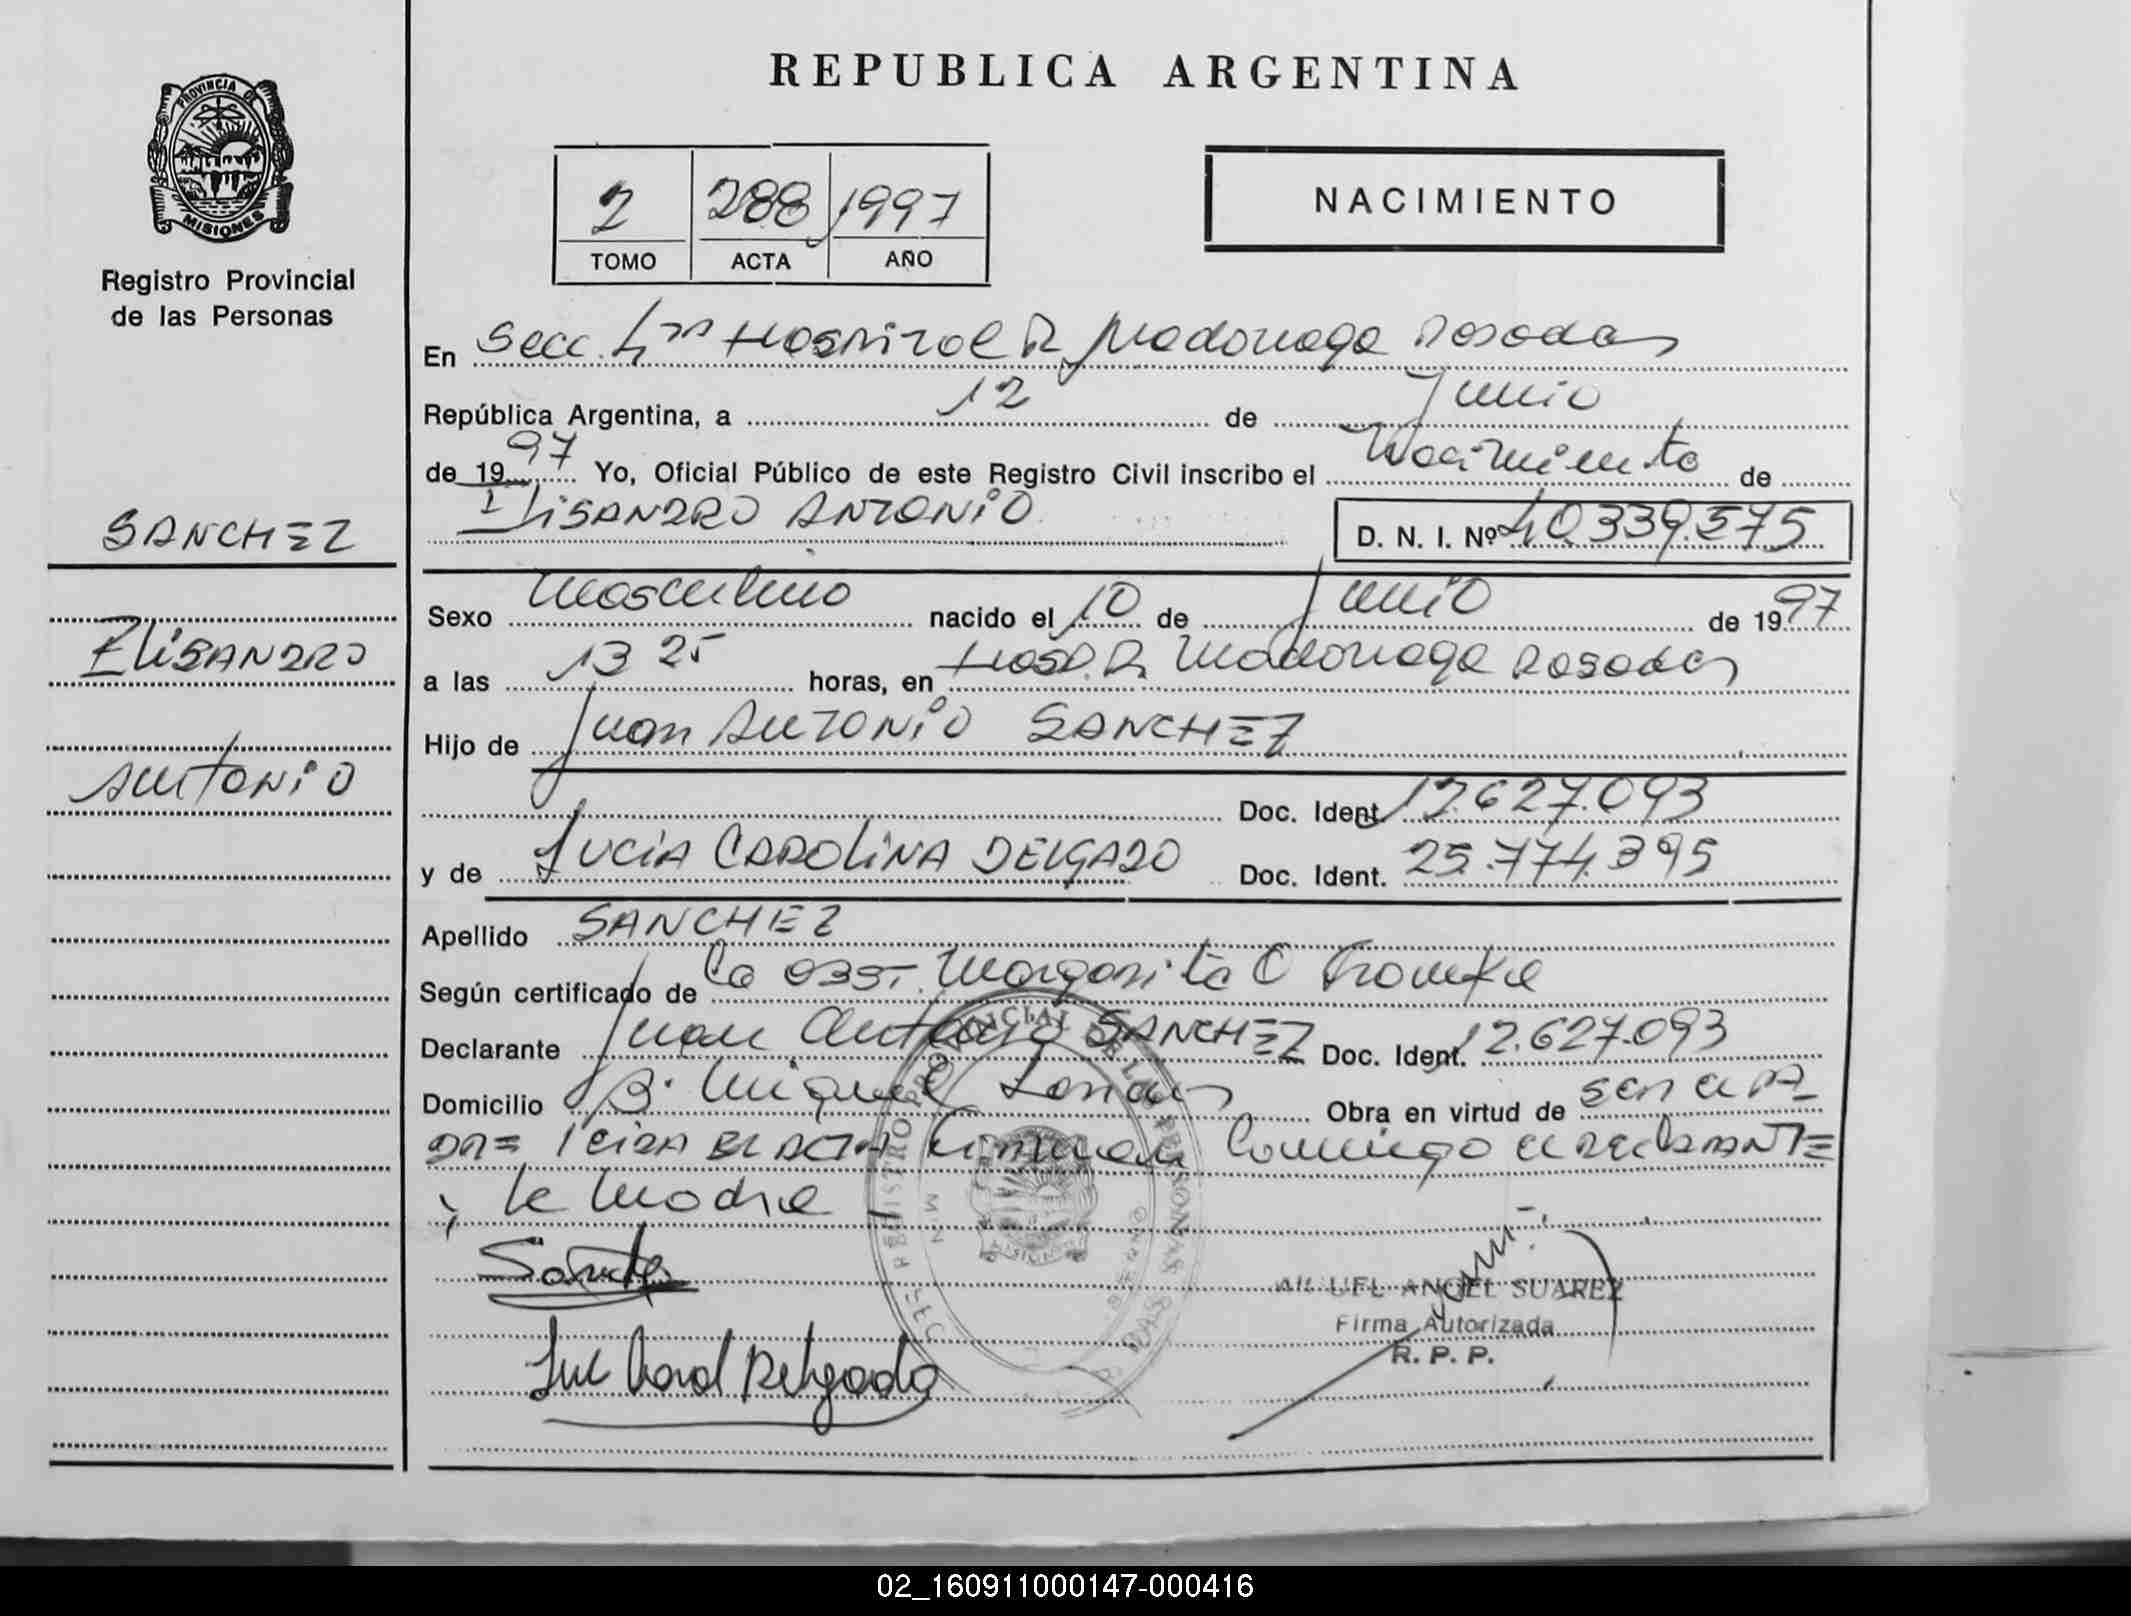 REPUBLICA ARGENTINA
PROVINCIA DE
MISIONES
Registro Provincial
de las Personas
2 288 1997
TOMO ACTA AÑO
NACIMIENTO
SANCHEZ
Elisandro
Antonio
En Secc. Hospital R Madariaga Posadas
República Argentina, a 12 de Junio
de 1997 Yo, Oficial Público de este Registro Civil inscribo el Nacimiento de
Elisandro Antonio D. N. I. Nº 40.339.575
Sexo masculino nacido el 10 de Junio de 1997
a las 13 25 horas, en Hosp. R. Madariaga Posadas
Hijo de Juan Antonio SANCHEZ
Doc. Ident. 12.627.093
y de Lucia Carolina DELGADO Doc. Ident. 25.774.395
Apellido SANCHEZ
Según certificado de la Obst. Margarita C
Declarante Juan Antonio SANCHEZ Doc. Ident. 12.627.093
Domicilio Bº Miguel Obra en virtud de ser el pa
dre leida el acta firman conmigo el declarante
y la madre
Delgado
ANGEL SUAREZ
Firma Autorizada
R. P. P.
02_160911000147-000416